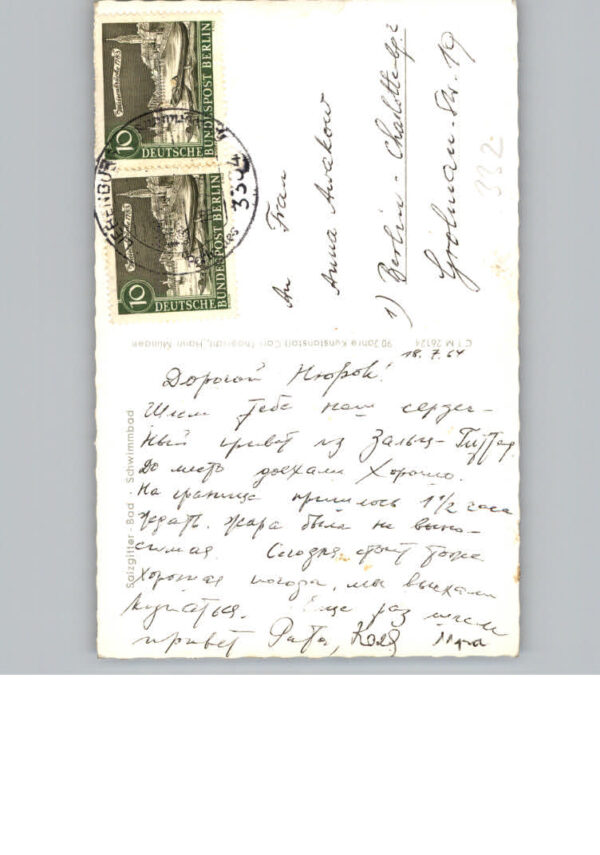 10
DEUTSCHE BUNDESPOST BERLIN
10
DEUTSCHE BUNDESPOST BERLIN
3304
An Frau
Anna Awakow
1) Berlin - Charlottenbg. 2
Grolman-Str. 19
332
C T M 26124 90 Jahre Kunstanstalt Carl Thoericht, Hann. Münden
Salzgitter-Bad Schwimmbad
18.7.64
Дорогой Нюрок!
Шлем тебе наш сердеч-
ный привет из Зальц-Гиттер
До место доехали хорошо.
На границе пришлось 1 1/2 часа
ждать. жара была не выно-
симая. Сегодня стоит тоже
хорошая погода, мы выехали
купаться. Еще раз шлем
привет Рата, Коля Нора